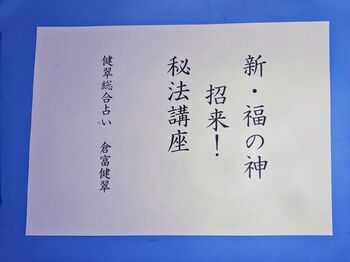 新・福の神
招来!
秘法講座
健翠総合占い 倉富健翠